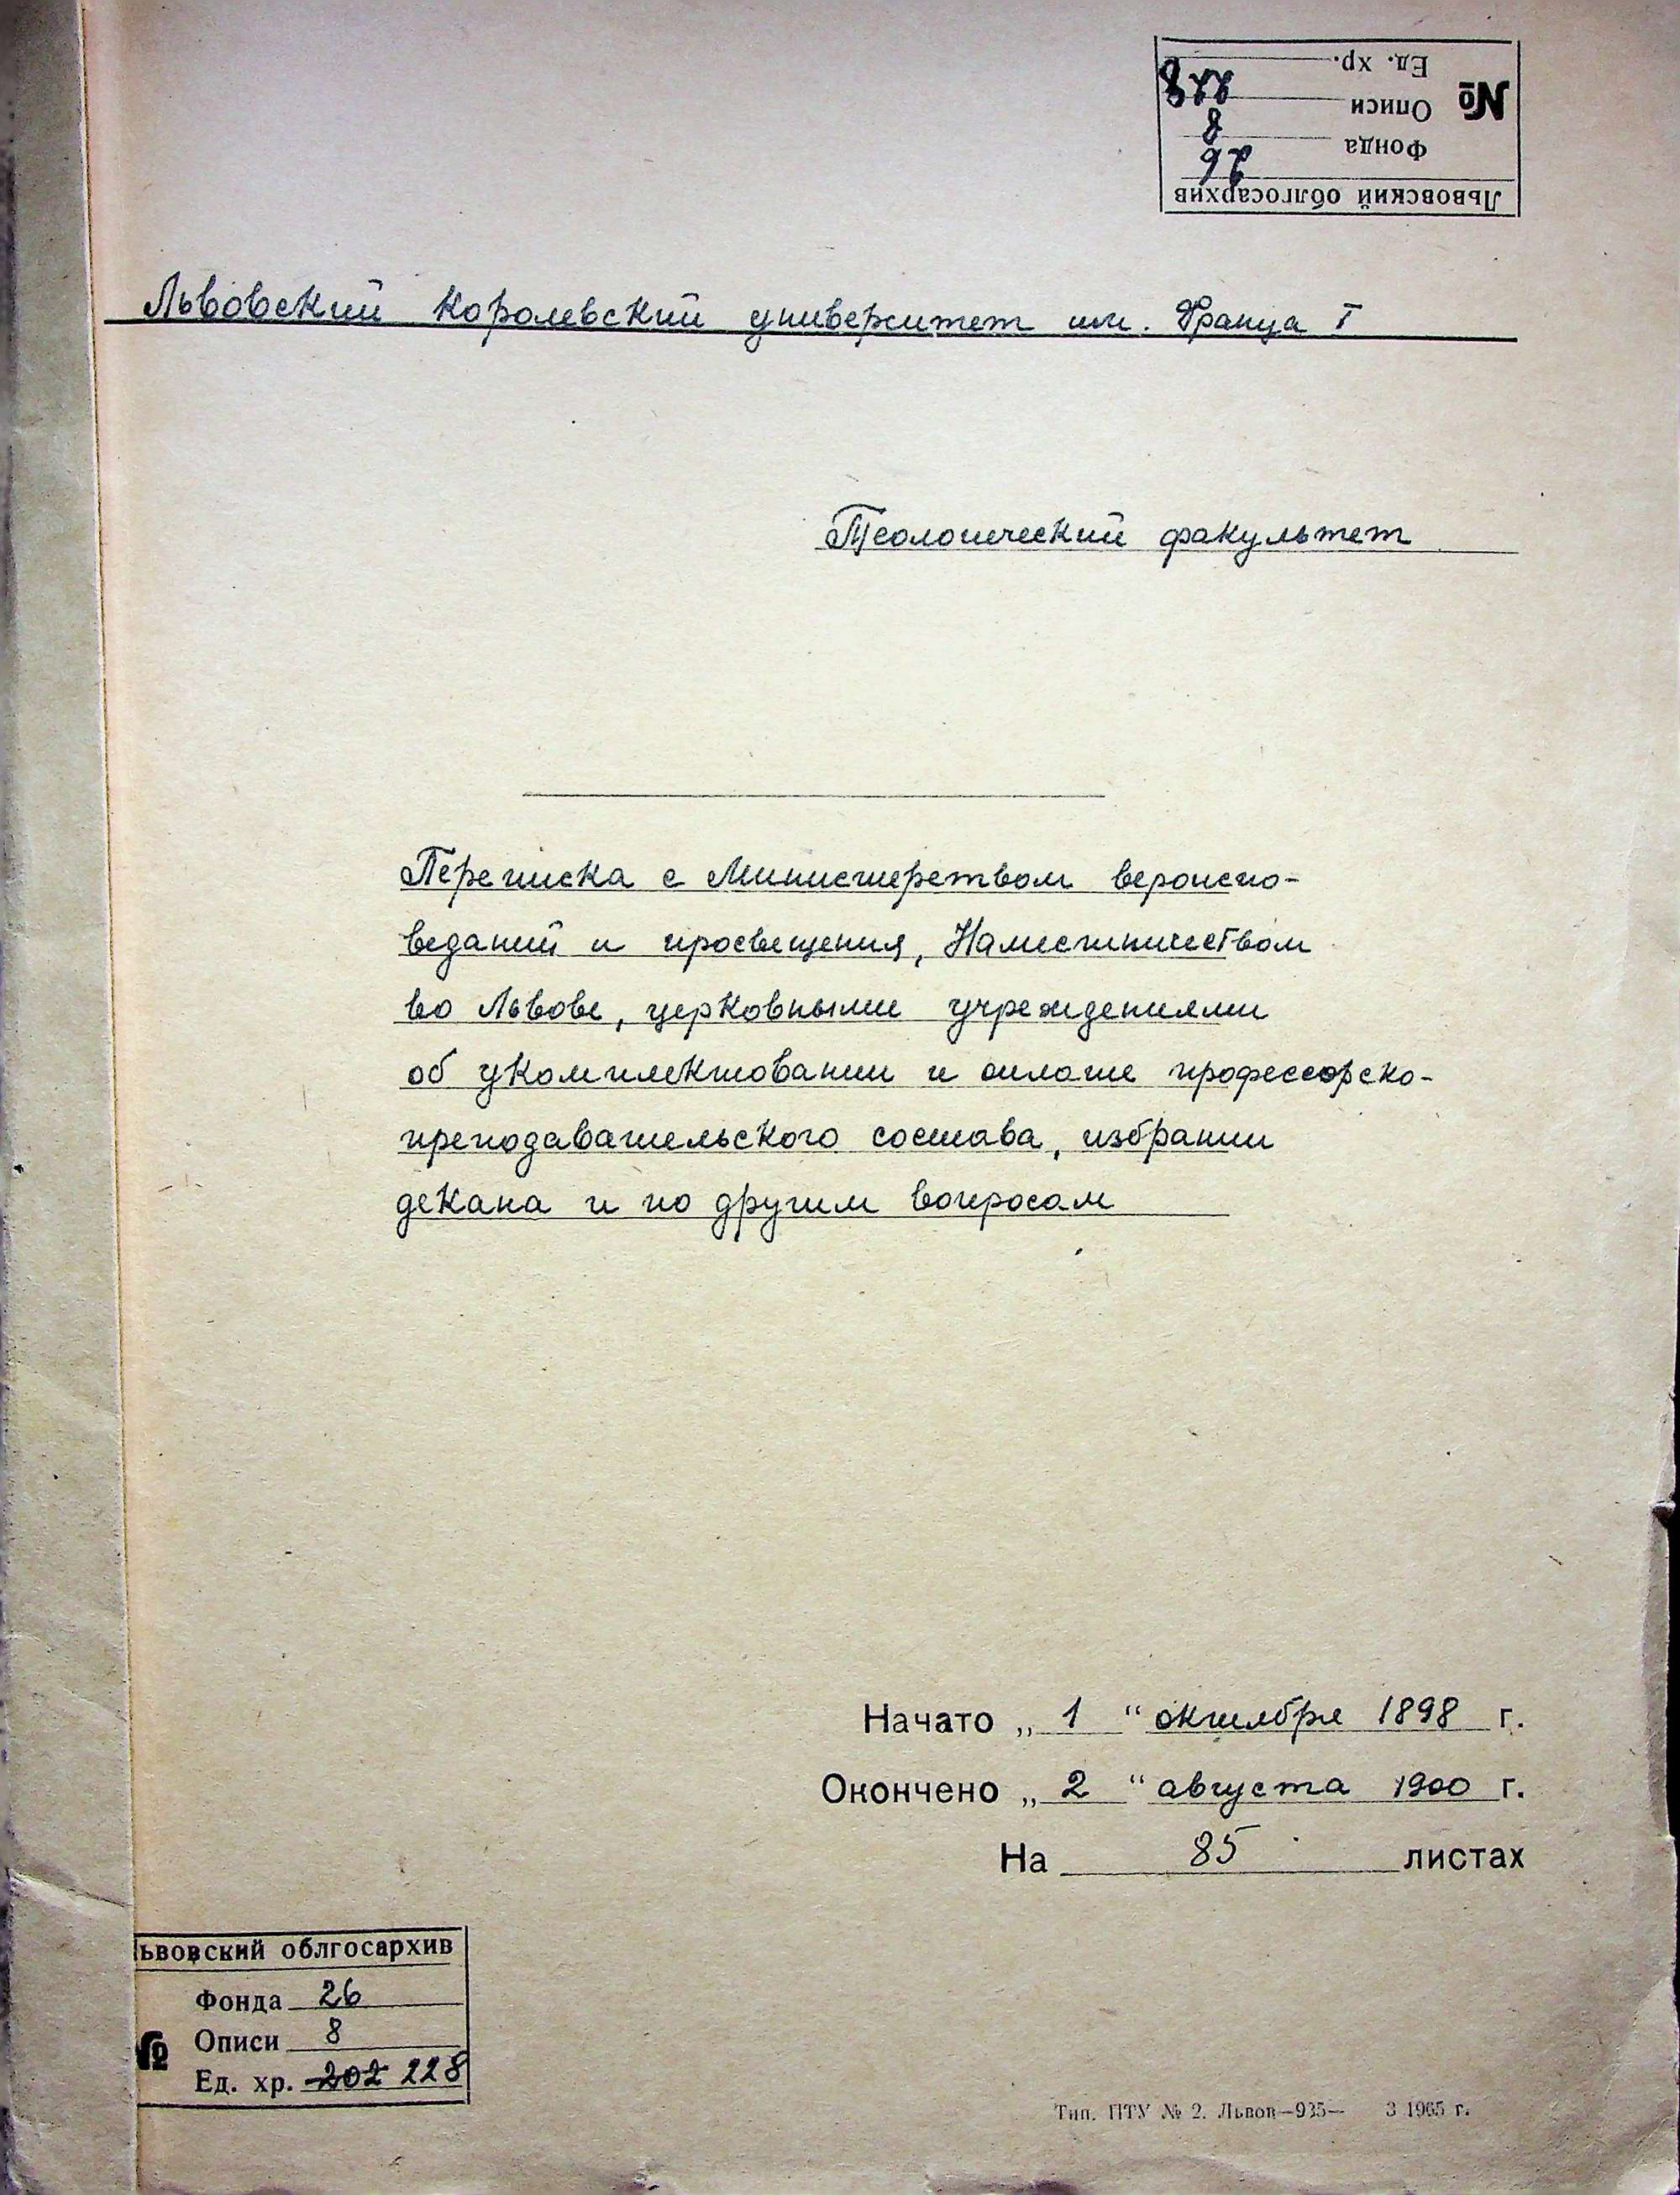 Львовский облгосархив
Фонда 26
Описи 8
№
Ед. хр. 228
Львовский королевский университет им. Франца I
Теологический факультет
Переписка с Министерством вероиспо-
веданий и просвещения, Наместничеством
во Львове, церковными учреждениями
об укомплектовании и оплате профессорско-
преподавательского состава, избрании
декана и по другим вопросам
Начато „ 1 “ октября 1898 г.
Окончено „ 2 “ августа 1900 г.
На 85 листах
ьвовский облгосархив
Фонда 26
Описи 8
№
Ед. хр. 202 228
Тип. ПТУ № 2. Львов—935— З 1965 г.